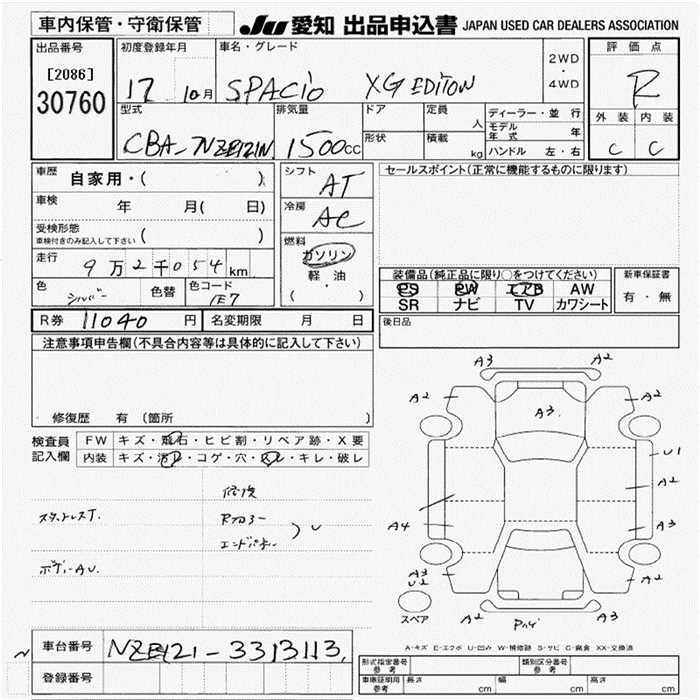 車内保管・守衛保管
JU 愛知 出品申込書 JAPAN USED CAR DEALERS ASSOCIATION
出品番号
[2086]
30760
初度登録年月
17 10月
車名・グレード
SPACIO XG EDITON
2WD
・
4WD
評価点
R
外装 内装
C C
型式
CBA-NZE121N
排気量
1500cc
ドア
形状
定員
人
積載
kg
ディーラー・並行
モデル年式 年
ハンドル 左・右
車歴
自家用・( )
車検 年 月( 日)
受検形態
車検付きのみ記入して下さい ( )
走行
9万2千054km
色
シルバー
色替
色コード
1E7
シフト
AT
冷房
AC
燃料
ガソリン
軽・油
( ・ )
セールスポイント(正常に機能するものに限ります)
装備品(純正品に限り○をつけてください)
PS PW エアB AW
SR ナビ TV カワシート
新車保証書
有・無
R券 11040 円
名変期限 月 日
後日品
注意事項申告欄(不具合内容等は具体的に記入して下さい)
修復歴 有 (箇所 )
検査員
記入欄
FW キズ・飛石・ヒビ割・リペア跡・X要
内装 キズ・汚レ・コゲ・穴・スレ・キレ・破レ
スタットレスT.
ボデーAU.
修復
Rフロアー
エンドパネル
) U
A3 A2
A2 A3. A2
U1
A2
A4 A3
A3
U2
A2
スペア
A2 A3
車台番号 NZE121-3313113.
登録番号
A-キズ E-エクボ U-凹み W-補修跡 S-サビ C-腐食 XX-交換済
形式指定番号
参考
類別区分番号
参考
車庫証明用
参考
長さ cm
幅 cm
高さ cm